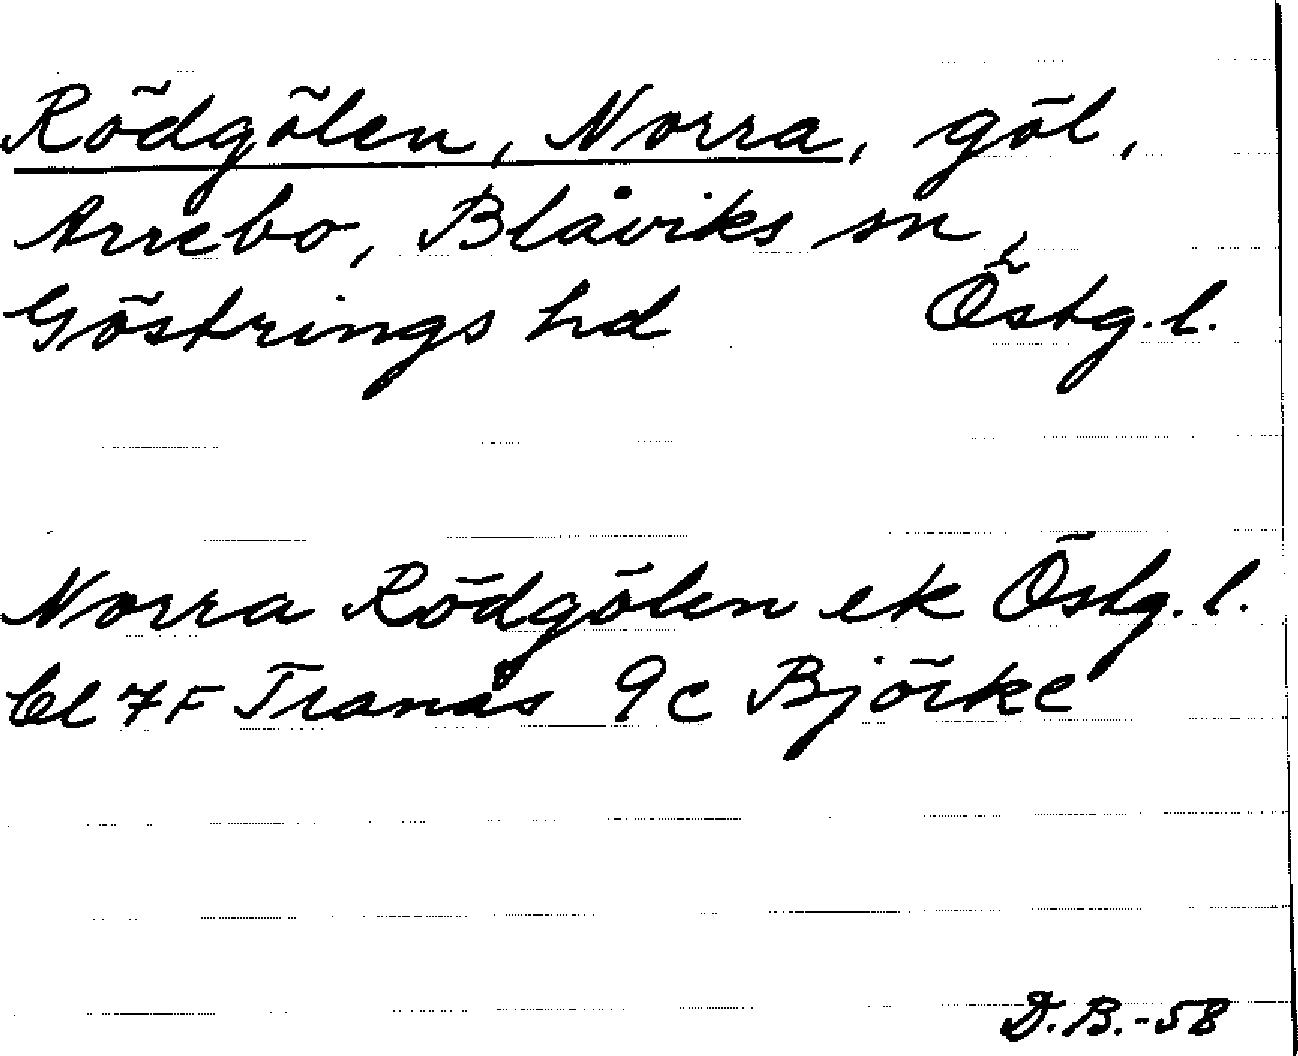 Rödgölen, Norra, göl,
Arrebo, Blåviks sn,
Göstrings hd Östg. l.
Norra Rödgölen ek Östg. l.
bl 7F Tranås 9c Björke
D.B.-58